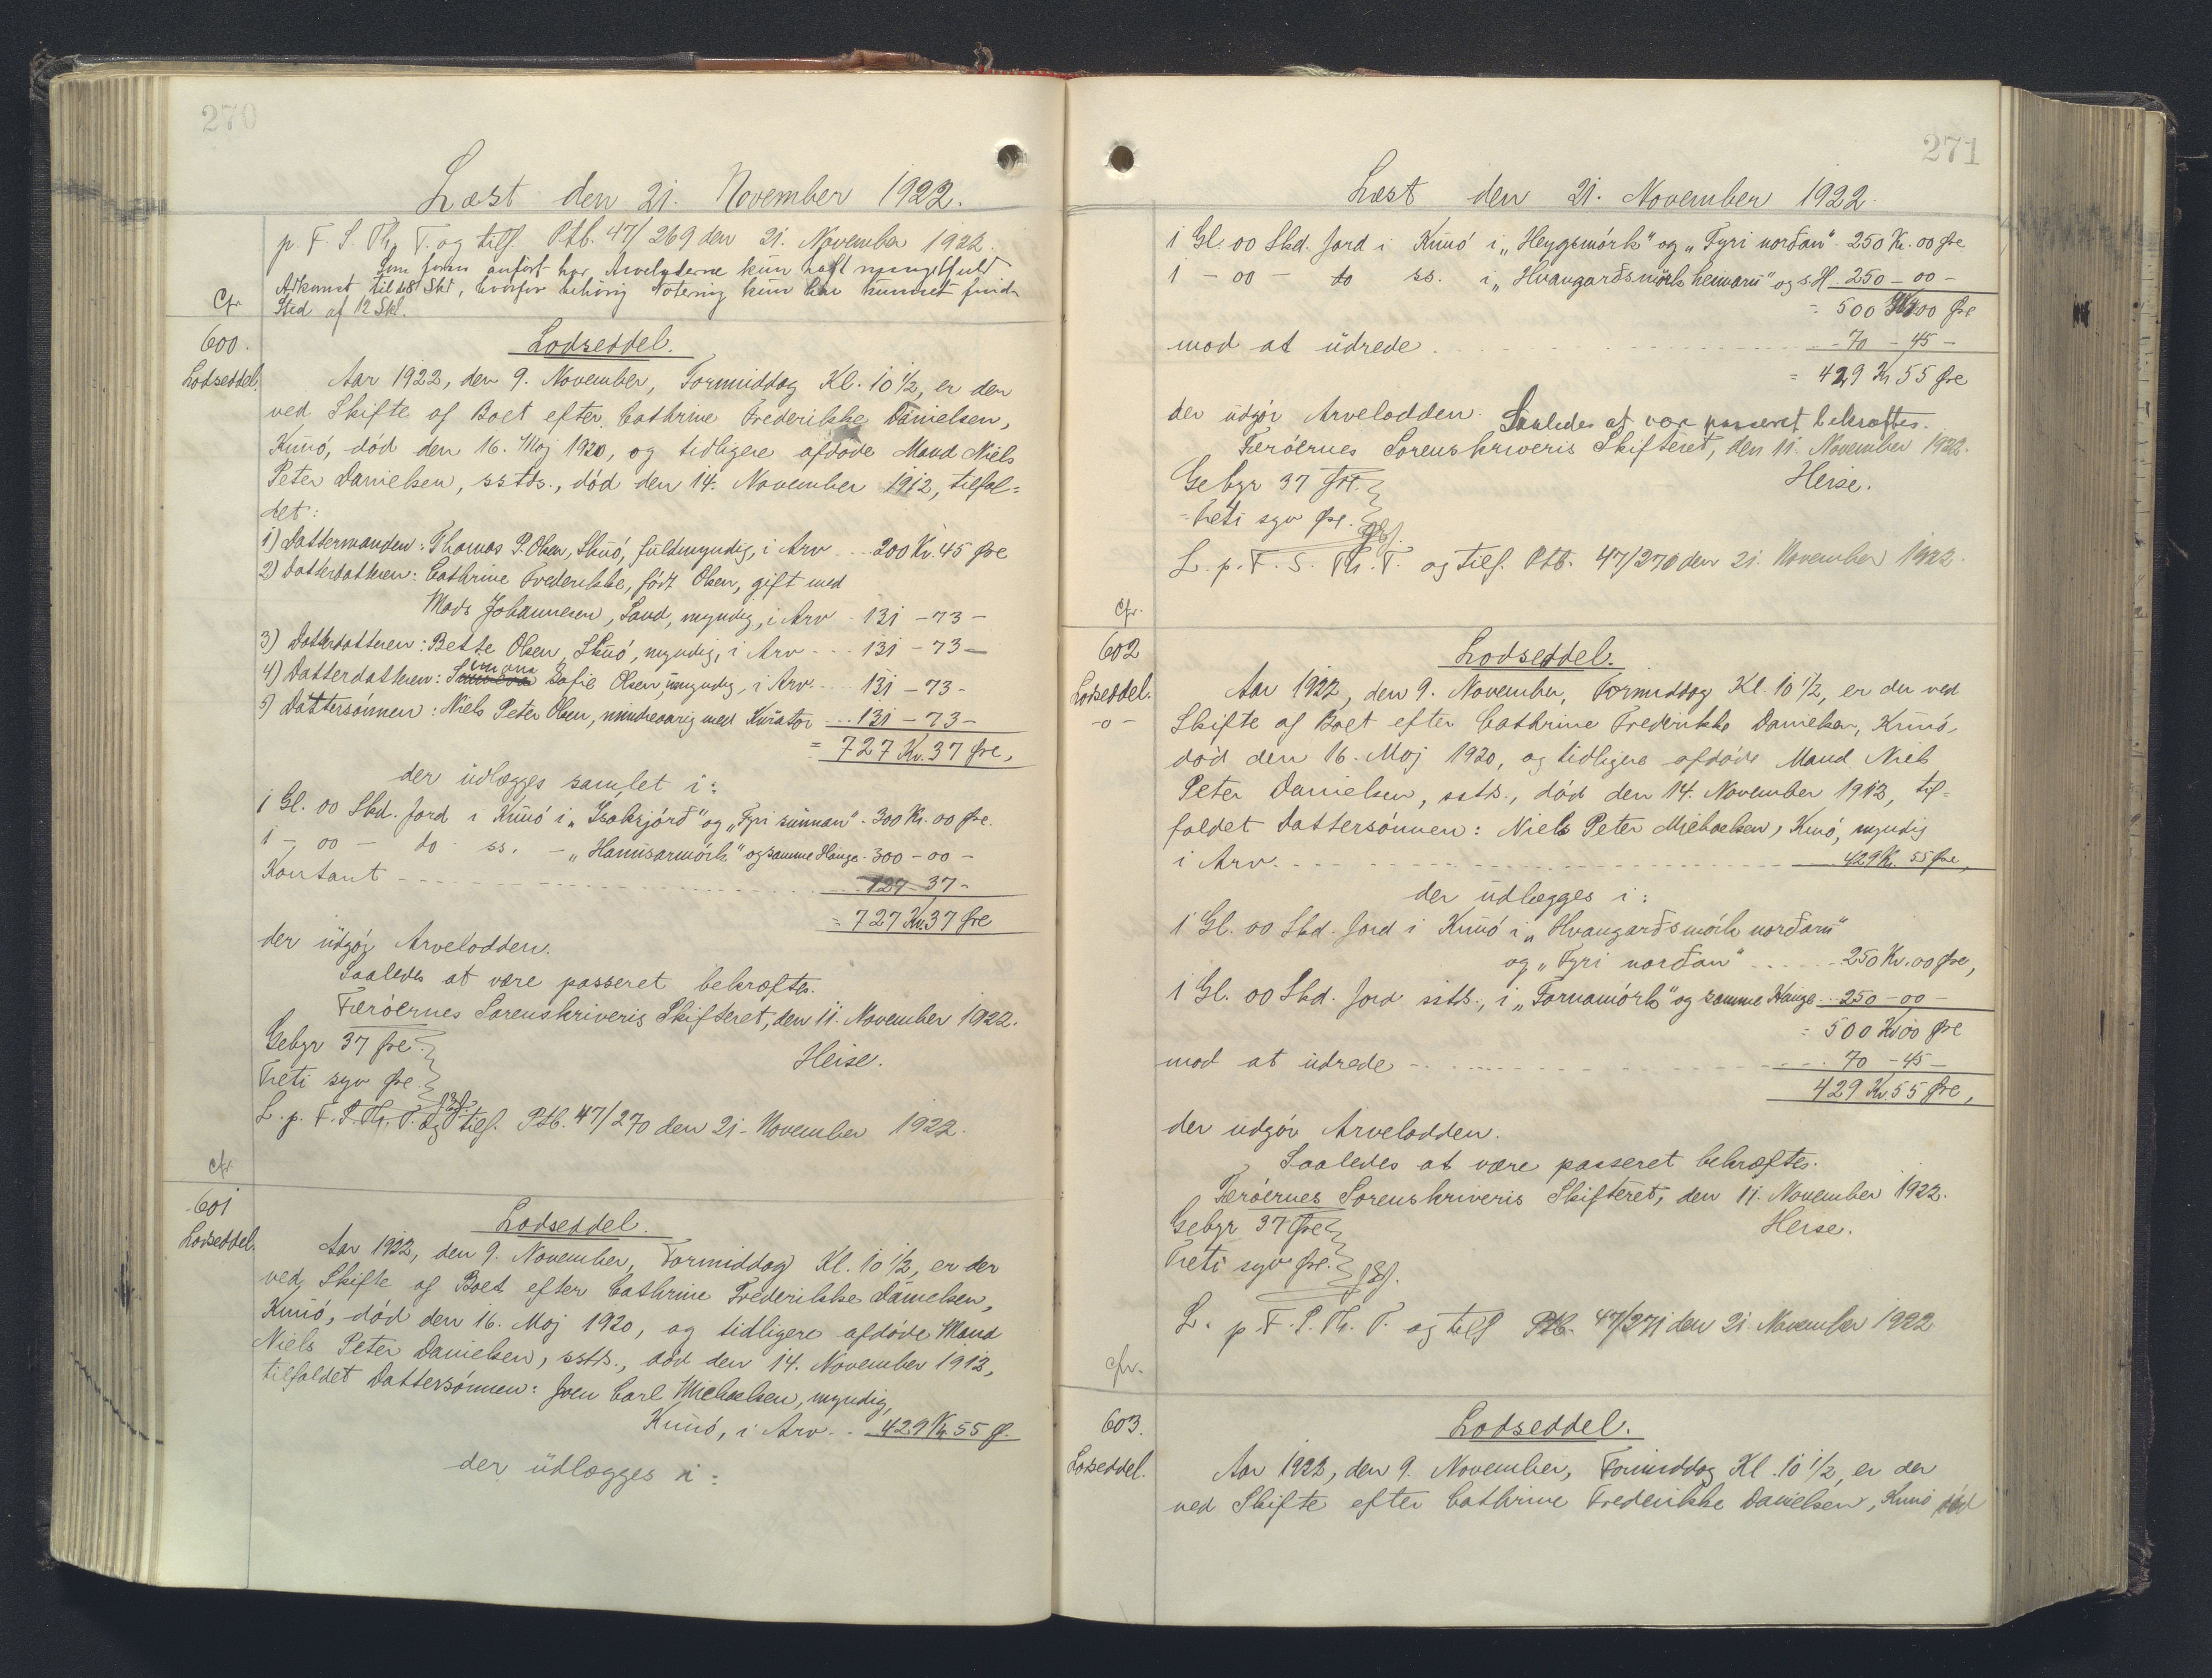 270
Læst den 21. November 1922.
p. F. S. Th. T. og tilf. Ptb. 47/269 den 21. November 1922.
Som foran anført har Arveladerne kun haft mangelfuld
Adkomst til de 18 Skd, hvorfor behørig Notering kun har kunnet finde
Cfr
Sted af 12 Skd.
600.
Lodseddel.
Lodseddel.
Aar 1922, den 9. November, Formiddag Kl. 10 1/2, er der
ved Skifte af Boet efter Cathrine Frederikke Danielsen,
Kunó, død den 16. Maj 1920, og tidligere afdøde Mand Niels
Peter Danielsen, sstds., død den 14. November 1912, tilfal=
det:
1) Dattermanden: Thomas P. Olsen, Skuó, fuldmyndig, i Arv ... 200 Kr. 45 Øre
2) Datterdatteren: Cathrine Frederikke, født Olsen, gift med
Mads Johannesen, Sand, myndig, i Arv - 131 - 73 -
3) Datterdatteren: Bette Olsen, Skuó, myndig, i Arv - - - 131 - 73 -
4) Datterdatteren: Simona Sofie Olsen umyndig, i Arv - - - 131 - 73 -
5) Dattersønnen: Niels Peter Olsen, mindreaarig med Kurator - - - 131 - 73 -
= 727 Kr. 37 Øre,
der udlægges samlet i:
1 Gl. 00 Skd. Jord i Kunó i "Isaksjórð" og "Fyri sunnan" - 300 Kr. 00 Øre.
1 - 00 - do - ss. - "Hanusarmórk" og samme Hauge - 300 - 00 -
Kontant - - - 127 - 37 -
= 727 Kr. 37 Øre
der udgør Arvelodden.
Saaledes at være passeret bekræftes.
Færóernes Sorenskriveris Skifteret, den 11. November 1922.
Gebyr 37 Øre.
Heise.
Treti syv Øre.
L. p. F. S. Th. T. og tilf. Ptb. 47/270 den 21. November 1922.
cfr.
601
Lodseddel.
Lodseddel.
Aar 1922, den 9. November, Formiddag Kl. 10 1/2, er der
ved Skifte af Boet efter Cathrine Frederikke Danielsen,
Kunó, død den 16. Maj 1920, og tidligere afdøde Mand
Niels Peter Danielsen, sstds., død den 14. November 1912,
tilfaldet Dattersønnen: Joen Carl Michaelsen, myndig,
Kunó, i Arv - - 429 Kr. 55 Ø.
der udlægges i:
271
Læst den 21. November 1922.
1 Gl. 00 Skd. Jord i Kunó i "Heygsmórk" og "Fyri norðan" - 250 Kr. 00 Øre
1 - 00 - do ss. i "Hvangarðsmórk heimaru" og s. H. 250 - 00 -
= 500 Kr. 00 Øre
mod at udrede - - - 70 - 45 -
= 429 Kr 55 Øre
der udgør Arvelodden. Saaledes at være passeret bekræftes.
Færóernes Sorenskriveris Skifteret, den 11. November 1922.
Gebyr 37 Øre.
Heise.
Treti syv Øre.
L. p. F. S. Th. T. og tilf. Ptb. 47/270 den 21. November 1922.
cfr.
602
Lodseddel.
Lodseddel.
-o-
Aar 1922, den 9. November, Formiddag Kl. 10 1/2, er der ved
Skifte af Boet efter Cathrine Frederikke Danielsen, Kunó,
død den 16. Maj 1920, og tidligere afdøde Mand Niels
Peter Danielsen, sstds., død den 14. November 1912, til=
faldet Dattersønnen: Niels Peter Michaelsen, Kunó, myndig
i Arv - - - 429 Kr. 55 Øre,
der udlægges i:
1 Gl. 00 Skd. Jord i Kunó i "Hvangarðsmórk norðaru"
og "Fyri norðan" - - - 250 Kr. 00 Øre,
1 Gl. 00 Skd. Jord sstds., i "Tarnamórk" og samme Hauge - - 250 - 00 -
= 500 Kr. 00 Øre
mod at udrede - - - 70 - 45 -
429 Kr. 55 Øre,
der udgør Arvelodden.
Saaledes at være passeret bekræftes.
Færóernes Sorenskriveris Skifteret, den 11. November 1922.
Gebyr 37 Øre
Heise.
Treti syv Øre.
L. p. F. S. Th. T. og tilf Ptb. 47/271 den 21. November 1922
cfr.
603.
Lodseddel.
Lodseddel.
Aar 1922, den 9. November, Formiddag Kl. 10 1/2, er der
ved Skifte efter Cathrine Frederikke Danielsen, Kunó død